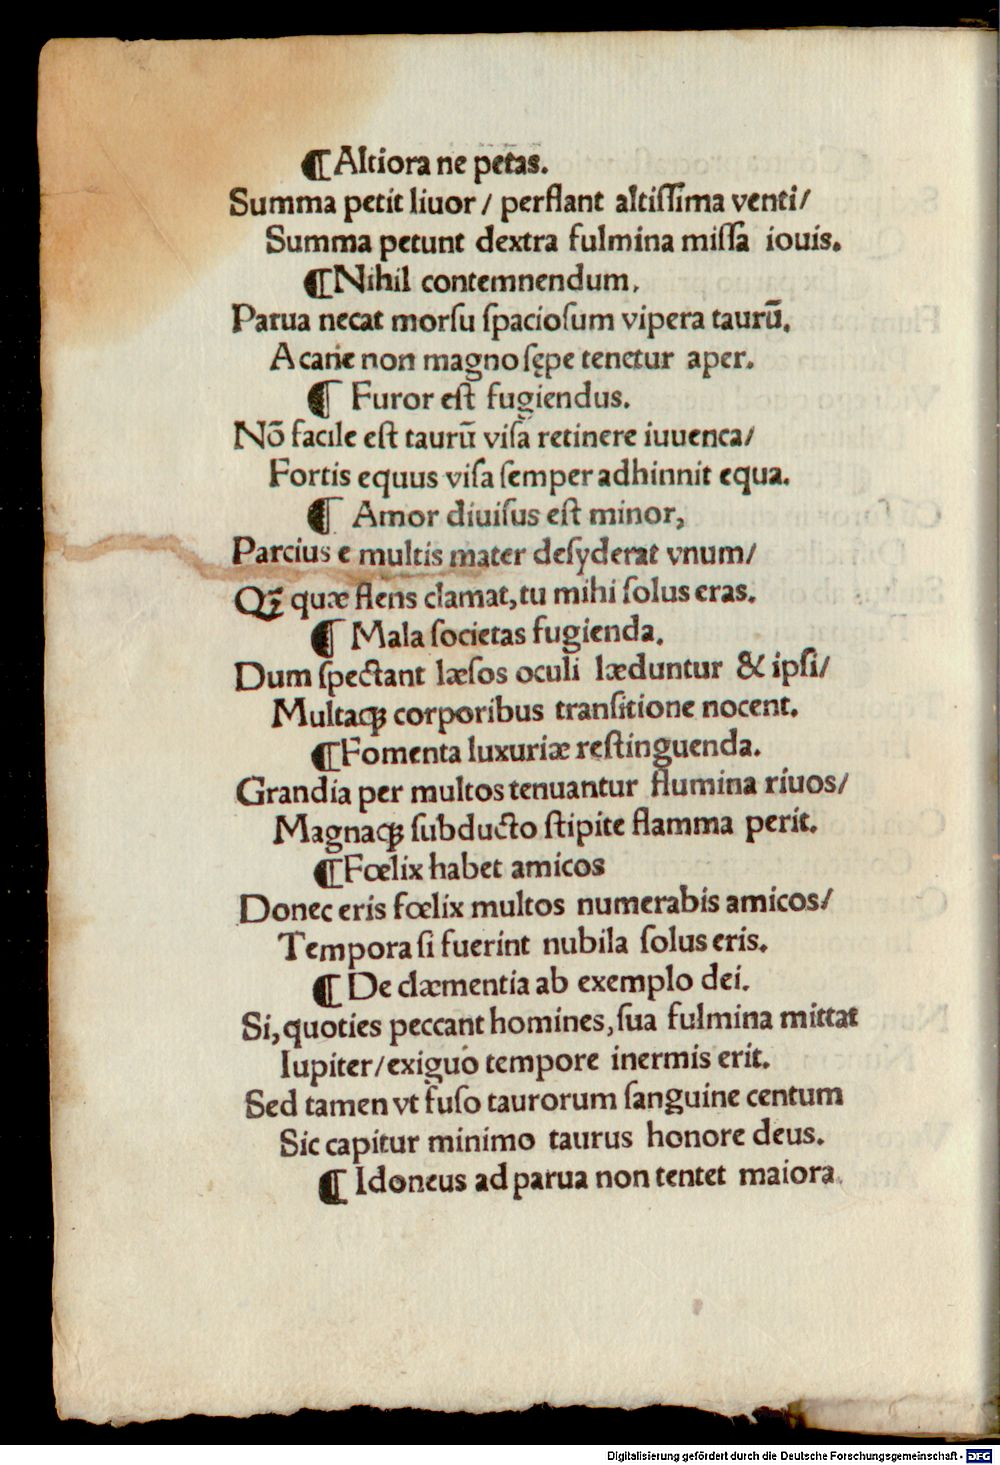 ¶Altiora ne petas.
Summa petit liuor / perflant altiſſima venti/
Summa petunt dextra fulmina miſſa iouis.
¶Nihil contemnendum,
Parua necat morſu ſpacioſum vipera taurū.
A cane non magno ſępe tenetur aper.
¶ Furor eſt fugiendus.
Nō facile eſt taurū viſa retinere iuuenca/
Fortis equus viſa ſemper adhinnit equa.
¶ Amor diuiſus eſt minor,
Parcius e multis mater deſyderat vnum/
Qꝫ̄ quæ flens clamat, tu mihi ſolus eras.
¶ Mala ſocietas fugienda.
Dum ſpectant læſos oculi læduntur & ipſi/
Multaqꝫ corporibus tranſitione nocent.
¶Fomenta luxuriæ reſtinguenda.
Grandia per multos tenuantur flumina riuos/
Magnaqꝫ ſubducto ſtipite flamma perit.
¶Fœlix habet amicos
Donec eris fœlix multos numerabis amicos/
Tempora ſi fuerint nubila ſolus eris.
¶ De clæmentia ab exemplo dei.
Si, quoties peccant homines, ſua fulmina mittat
Iupiter/exiguo tempore inermis erit.
Sed tamen vt fuſo taurorum ſanguine centum
Sic capitur minimo taurus honore deus.
¶ Idoneus ad parua non tentet maiora.
Digitalisierung gefördert durch die Deutsche Forschungsgemeinschaft - DFG